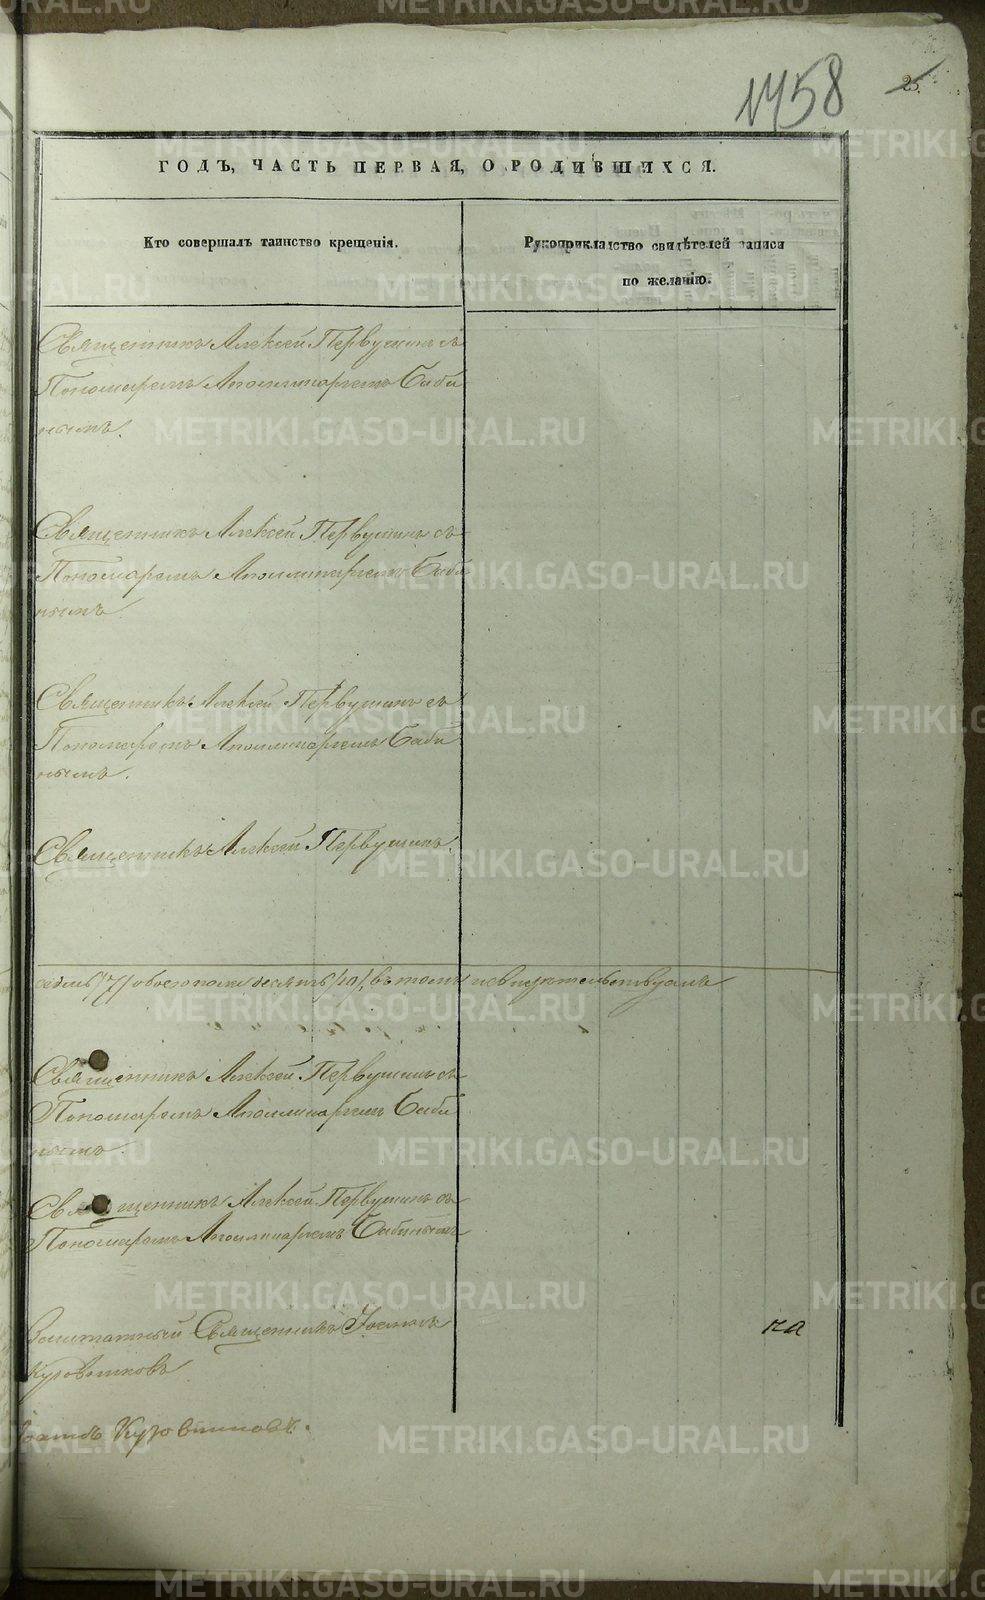 1458
25.
ГОДЪ, ЧАСТЬ ПЕРВАЯ, О РОДИВШИХСЯ.
Кто совершалъ таинство крещенія.
Рукоприкладство свидѣтелей записи
по желанію.
Священникъ Алексѣй Первушинъ съ
Пономаремъ Аполлинаріемъ Баби
нымъ.
Священникъ Алексѣй Первушинъ съ
Пономаремъ Аполлинаріемъ Баби
нымъ
Священникъ Алексѣй Первушинъ съ
Пономаремъ Аполлинаріемъ Баби
нымъ.
Священникъ Алексѣй Первушинъ.
седмь /7/ обоего пола десять /10/, въ томъ свидѣтельствуемъ
Священникъ Алексѣй Первушинъ съ
Пономаремъ Аполлинаріемъ Баби
нымъ.
Священникъ Алексѣй Первушинъ съ
Пономаремъ Аполлинаріемъ Бабинымъ
Заштатный Священникъ Іоаннъ
на
METRIKI.GASO-URAL.RU